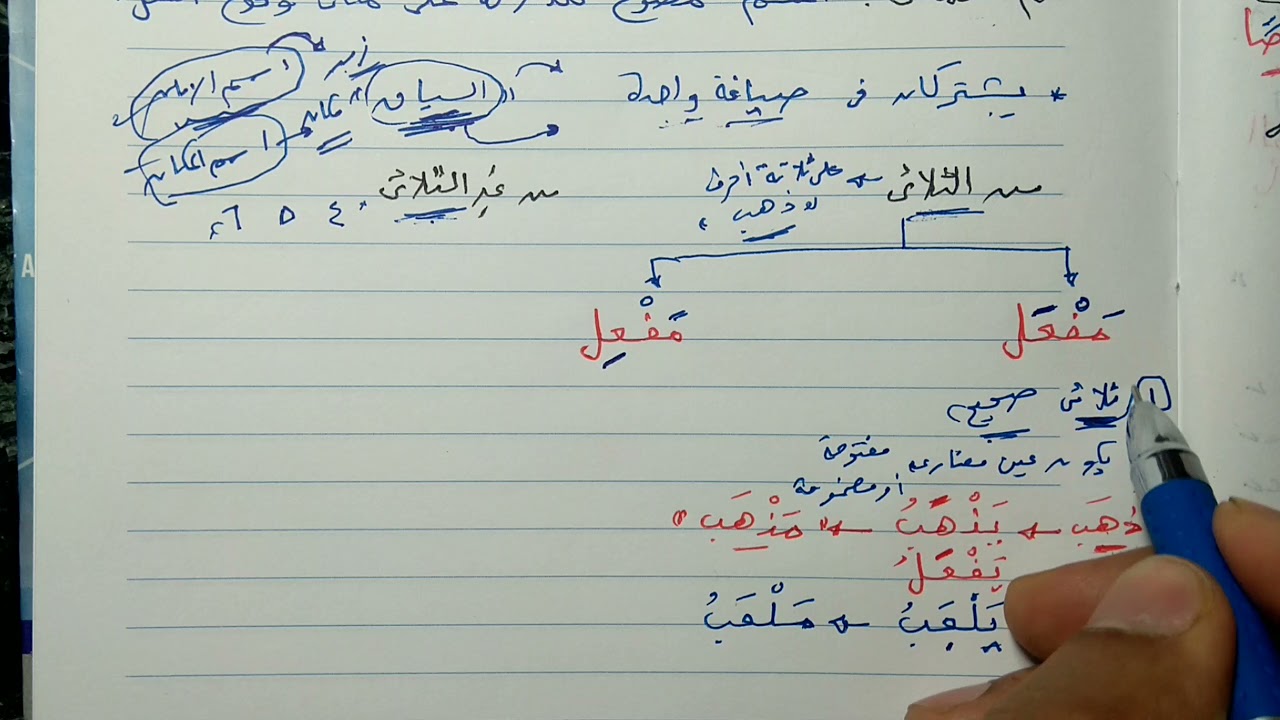 * يشتركان فى صياغة واحدة " السياق " زمان مكان
اسم الزمان
اسم المكان
من الثلاثى على ثلاثة أحرف من غير الثلاثى ٤ ٥ ٦
ذهب
مَفْعَل مَفْعِل
١ ثلاثى صحيح
يكون عين مضارعه مفتوحة
أو مضمومة
ذَهَب يَذْهَبُ " مَذْهَب "
يَفْعَلُ
يَلْعَبُ مَلْعَبُ